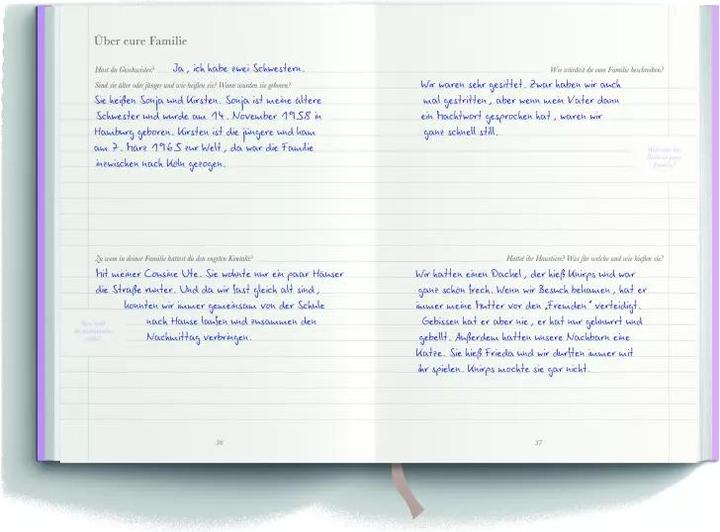 Über eure Familie
Hast du Geschwister? Ja, ich habe zwei Schwestern.
Sind sie älter oder jünger und wie heißen sie? Wann wurden sie geboren?
Sie heißen Sonja und Kirsten. Sonja ist meine ältere
Schwester und wurde am 14. November 1958 in
Hamburg geboren. Kirsten ist die jüngere und kam
am 7. März 1965 zur Welt, da war die Familie
inzwischen nach Köln gezogen.
Zu wem in deiner Familie hattest du den engsten Kontakt?
Mit meiner Cousine Ute. Sie wohnte nur ein paar Häuser
die Straße runter. Und da wir fast gleich alt sind,
konnten wir immer gemeinsam von der Schule
nach Hause laufen und zusammen den
Nachmittag verbringen.
36
Wie würdest du eure Familie beschreiben?
Wir waren sehr gesittet. Zwar haben wir auch
mal gestritten, aber wenn mein Vater dann
ein Machtwort gesprochen hat, waren wir
ganz schnell still.
Hattet ihr Haustiere? Was für welche und wie hießen sie?
Wir hatten einen Dackel, der hieß Knirps und war
ganz schön frech. Wenn wir Besuch bekamen, hat er
immer meine Mutter vor den „Fremden“ verteidigt.
Gebissen hat er aber nie, er hat nur geknurrt und
gebellt. Außerdem hatten unsere Nachbarn eine
Katze. Sie hieß Frieda und wir durften immer mit
ihr spielen. Knirps mochte sie gar nicht.
37